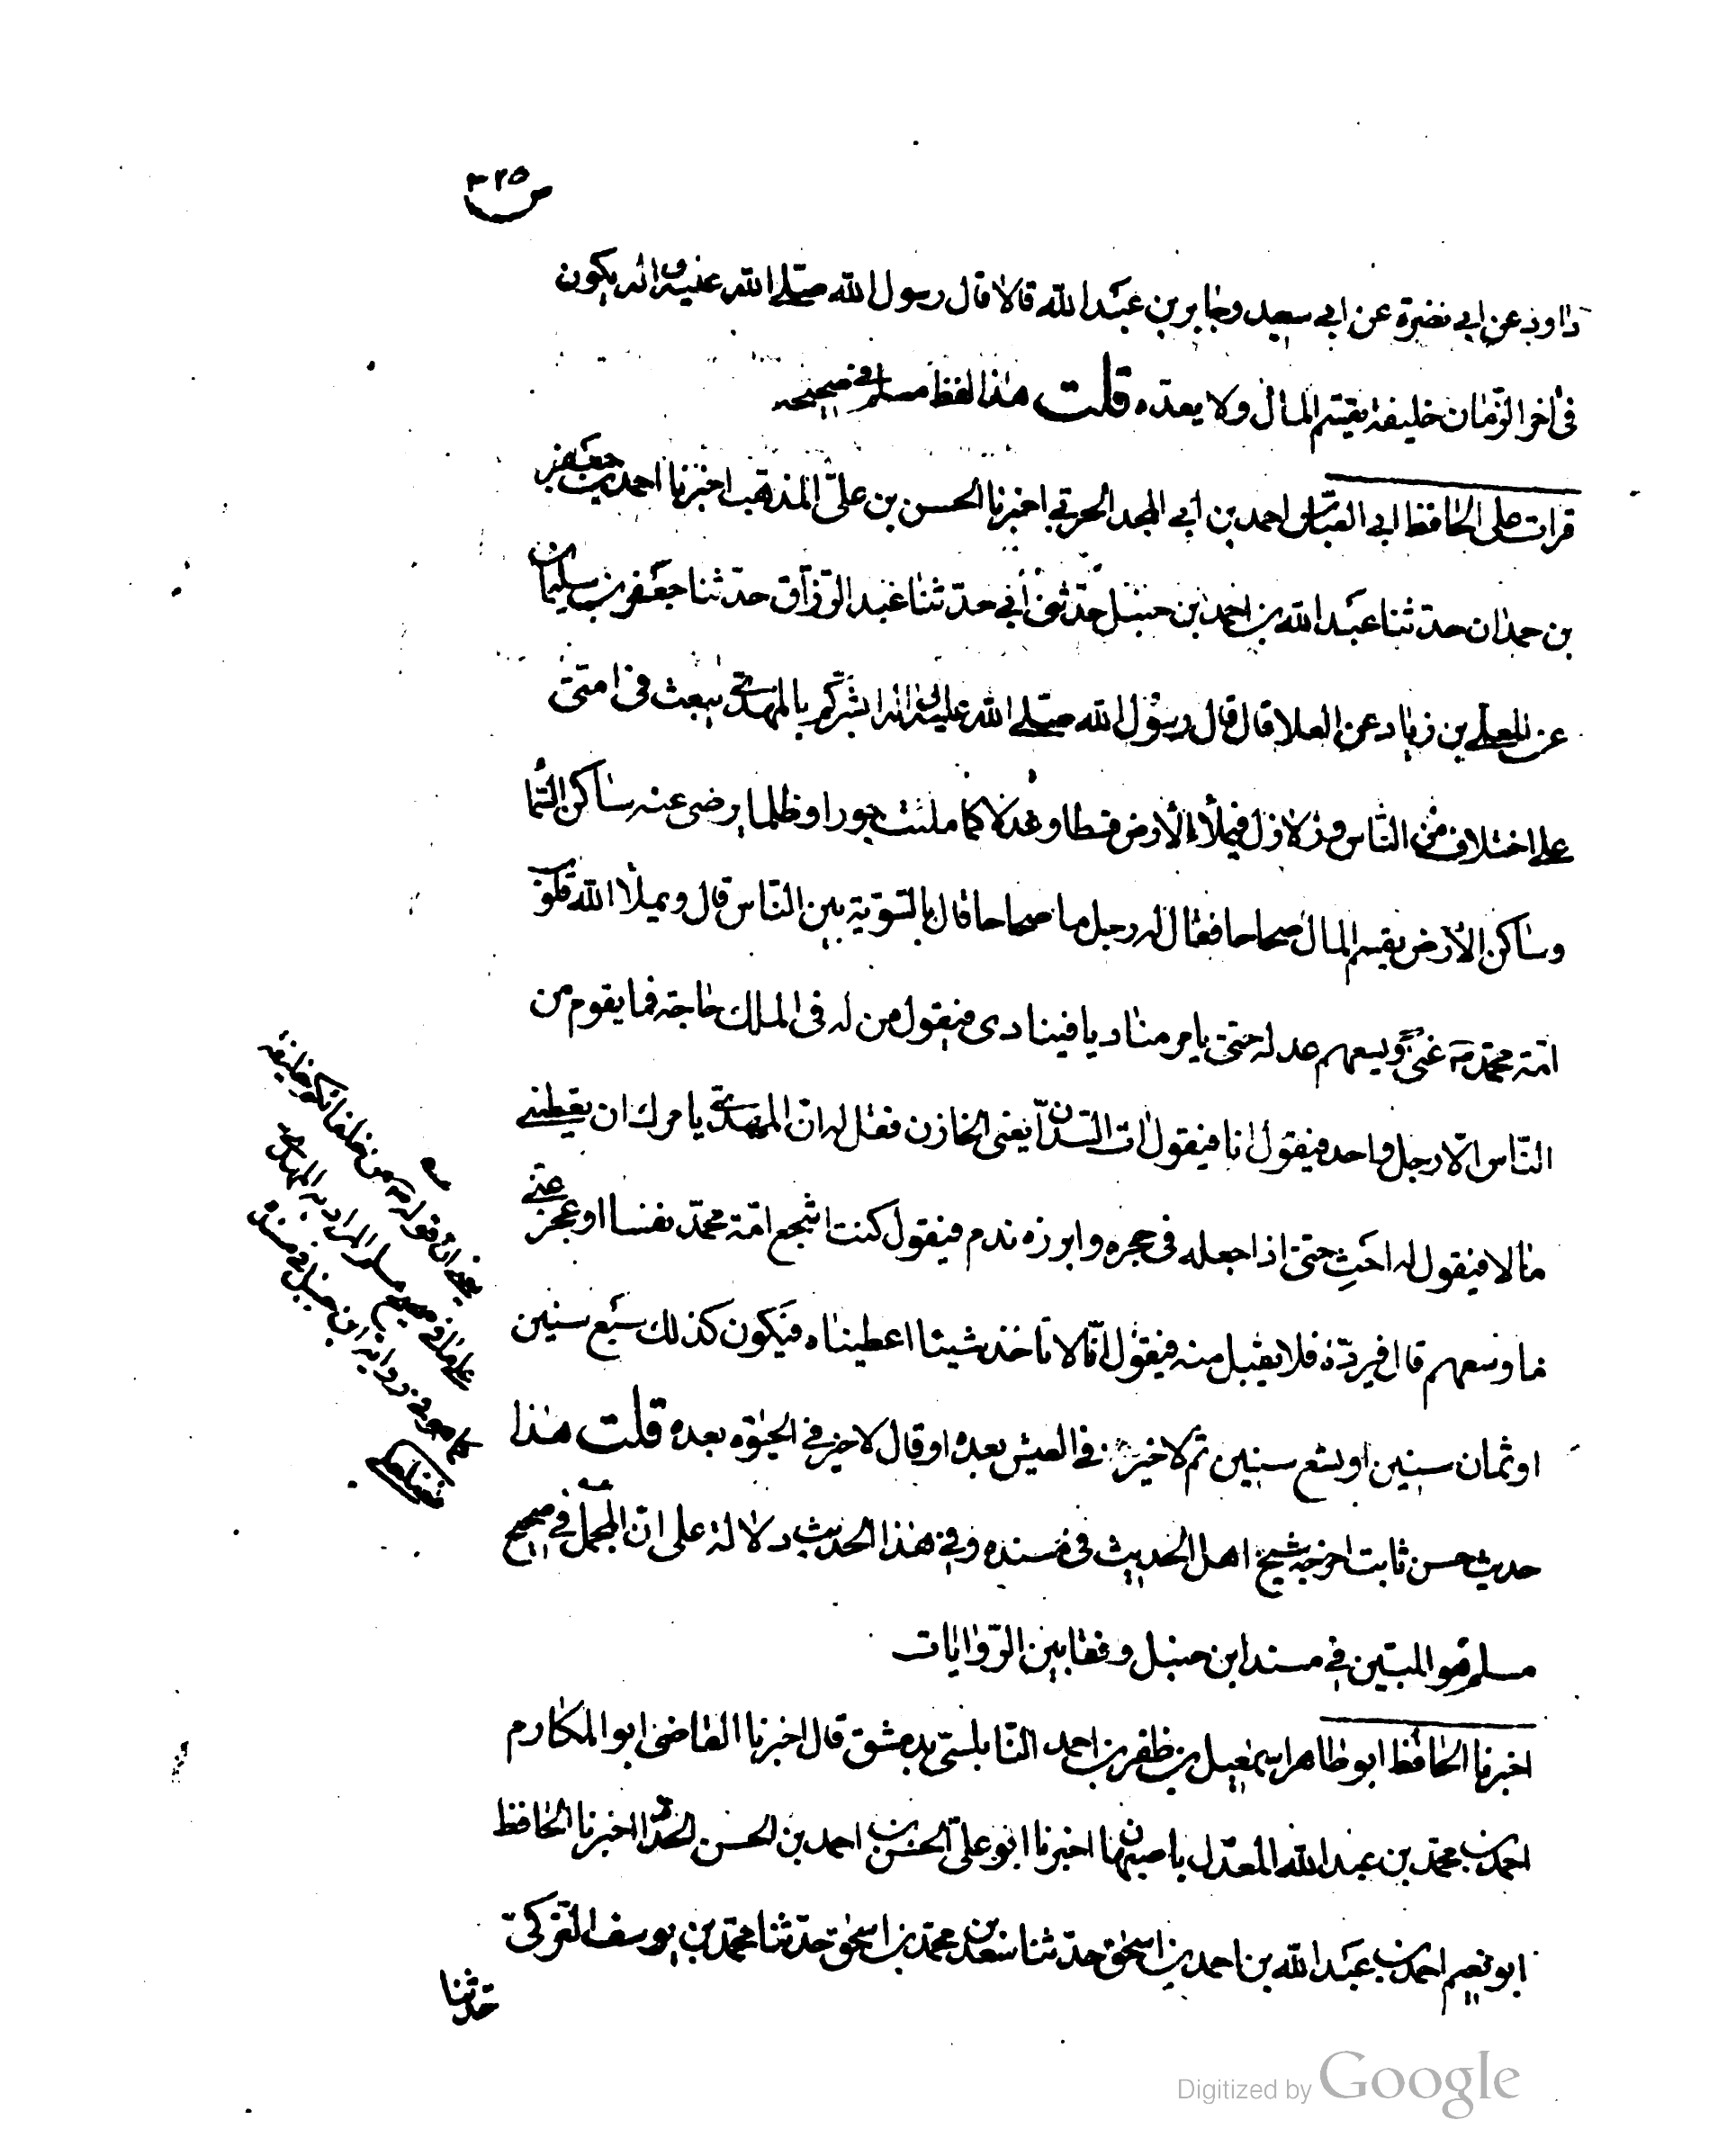 ص ٣٢٥
داود عن ابي نضرة عن ابي سعيد وجابر بن عبد الله قالا قال رسول الله صلى الله عليه واله يكون
في اخر الزمان خليفة يقسم المال ولا يعده قلت هذا لفظ مسلم في صحيحه
قرات على الحافظ ابي العباس احمد بن ابي المجد الحربي اخبرنا الحسن بن علي المذهب اخبرنا احمد بن جعفر
بن حمدان حدثنا عبد الله بن احمد بن حنبل حدثني ابي حدثنا عبد الرزاق حدثنا جعفر بن سليمان
عن المعلى بن زياد عن العلا قال قال رسول الله صلى الله عليه واله ابشركم بالمهدي يبعث في امتي
على اختلاف من الناس وزلازل فيملأ الأرض قسطا وعدلا كما ملئت جورا وظلما يرضى عنه ساكن السما
وساكن الأرض يقسم المال صحاحا فقال له رجل ما صحاحا قال بالسوية بين الناس قال ويملأ الله قلوب
امة محمد ص غنى ويسعهم عدله حتى يامر مناديا فينادي فيقول من له في الملك حاجة فما يقوم من
الناس الا رجل واحد فيقول انا فيقول ات السدان يعني الخازن فقل له ان المهدي يامرك ان يعطيني
مالا فيقول له احث حتى اذا جعله في حجره وابرزه ندم فيقول كنت اشجع امة محمد نفسا او عجز عني
ما وسعهم قال فيرده فلا يقبل منه فيقول انا لا ناخذ شيئا اعطيناه فيكون كذلك سبع سنين
او ثمان سنين او تسع سنين ثم لا خير في العيش بعده او قال لا خير في الحيوة بعده قلت هذا
حديث حسن ثابت اخرجه شيخ اهل الحديث في مسنده وفي هذا الحديث دلالة على ان المجمل في صحيح
مسلم هو المبين في مسند ابن حنبل وفقا بين الروايات
اخبرنا الحافظ ابو طاهر اسمعيل بن ظفر بن احمد النابلسي بدمشق قال اخبرنا القاضي ابو المكارم
احمد بن محمد بن عبد الله المعدل باصبهان اخبرنا ابو علي الحسن بن احمد بن الحسن الحداد اخبرنا الحافظ
ابو نعيم احمد بن عبد الله بن احمد بن اسحق حدثنا محمد بن اسحق حدثنا محمد بن يوسف التركي
حدثنا
ان قوله ص من خلفائكم خليفة
على ما في صحيح مسلم المراد به المهدي
كما هو في رواية ابن حنبل في مسنده